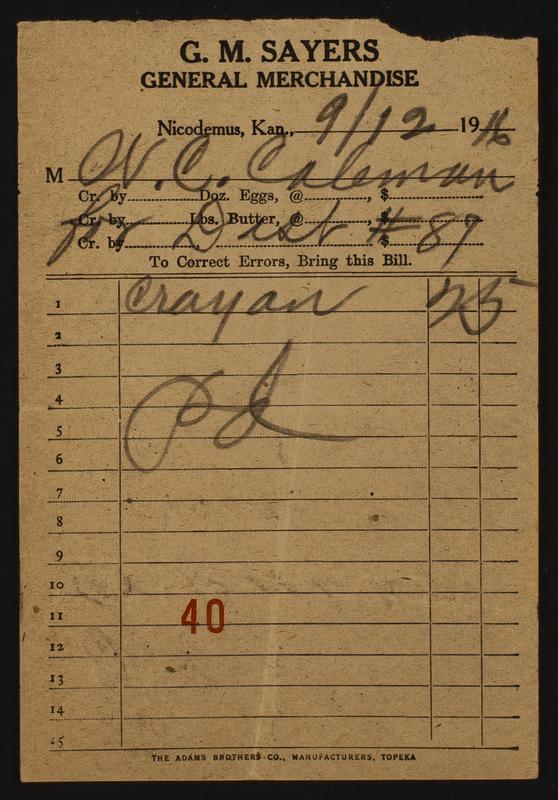 G. M. SAYERS
GENERAL MERCHANDISE
Nicodemus, Kan., 9/12 1916
M W. C. Coleman
Cr. by Doz. Eggs, @ , $
Cr. by Lbs. Butter, @ , $
for Dist #87
Cr. by $
To Correct Errors, Bring this Bill.
1 Crayan 25
2
3
4
Pd
5
6
7
8
9
10
11 40
12
13
14
15
THE ADAMS BROTHERS CO., MANUFACTURERS, TOPEKA